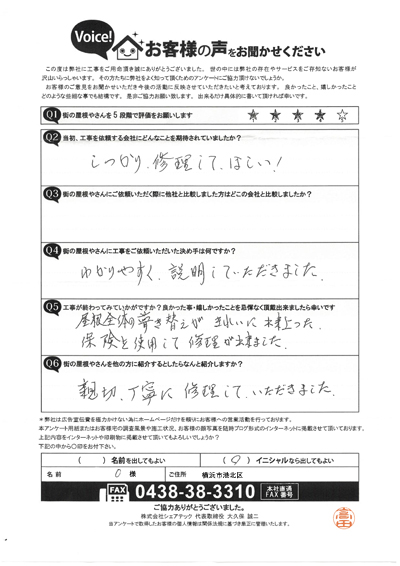 Voice!
お客様の声をお聞かせください
この度は弊社に工事をご用命頂き誠にありがとうございました。世の中には弊社の存在やサービスをご存知ないお客様が
沢山いらっしゃいます。その方たちに弊社をよく知って頂くためのアンケートにご協力頂けないでしょうか。
お客様のご意見をお聞かせいただき今後の活動に反映させていただきたいと考えております。良かったこと、嬉しかったこと
どのような些細な事でも結構です。是非ご協力お願い致します。出来るだけ具体的に書いて頂ければ幸いです。
Q1 街の屋根やさんを5段階で評価をお願いします ★ ★ ★ ★ ☆
Q2 当初、工事を依頼する会社にどんなことを期待されていましたか?
しっかり、修理して、ほしい!
Q3 街の屋根やさんにご依頼いただく際に他社と比較しました方はどこの会社と比較しましたか?
Q4 街の屋根やさんに工事をご依頼いただいた決め手は何ですか?
わかりやすく、説明していただきました。
Q5 工事が終わってみていかがですか?良かった事・嬉しかったことを忌憚なく頂戴出来ましたら幸いです
屋根全体の葺き替えが きれいに 出来上った。
保険を使用して 修理が出来ました。
Q6 街の屋根やさんを他の方に紹介するとしたらなんと紹介しますか?
親切、丁寧に 修理して、いただきました。
※弊社は広告宣伝費を極力かけない為にホームページだけを頼りにお客様への営業活動を行っております。
本アンケート用紙またはお客様宅の調査風景や施工状況、お客様の顔写真を随時ブログ形式のインターネットに掲載させて頂いております。
上記内容をインターネットや印刷物に掲載させて頂いてもよろしいでしょうか?
下記の中から〇印をお付下さい。
( ) 名前を出してもよい ( 〇 ) イニシャルなら出してもよい
名前 O 様 ご住所 横浜市港北区
FAX 0438-38-3310 本社直通 FAX番号
ご協力ありがとうございました。
株式会社シェアテック 代表取締役 大久保 誠二
当アンケートで取得したお客様の個人情報は関係法規に基づき厳正に管理いたします。